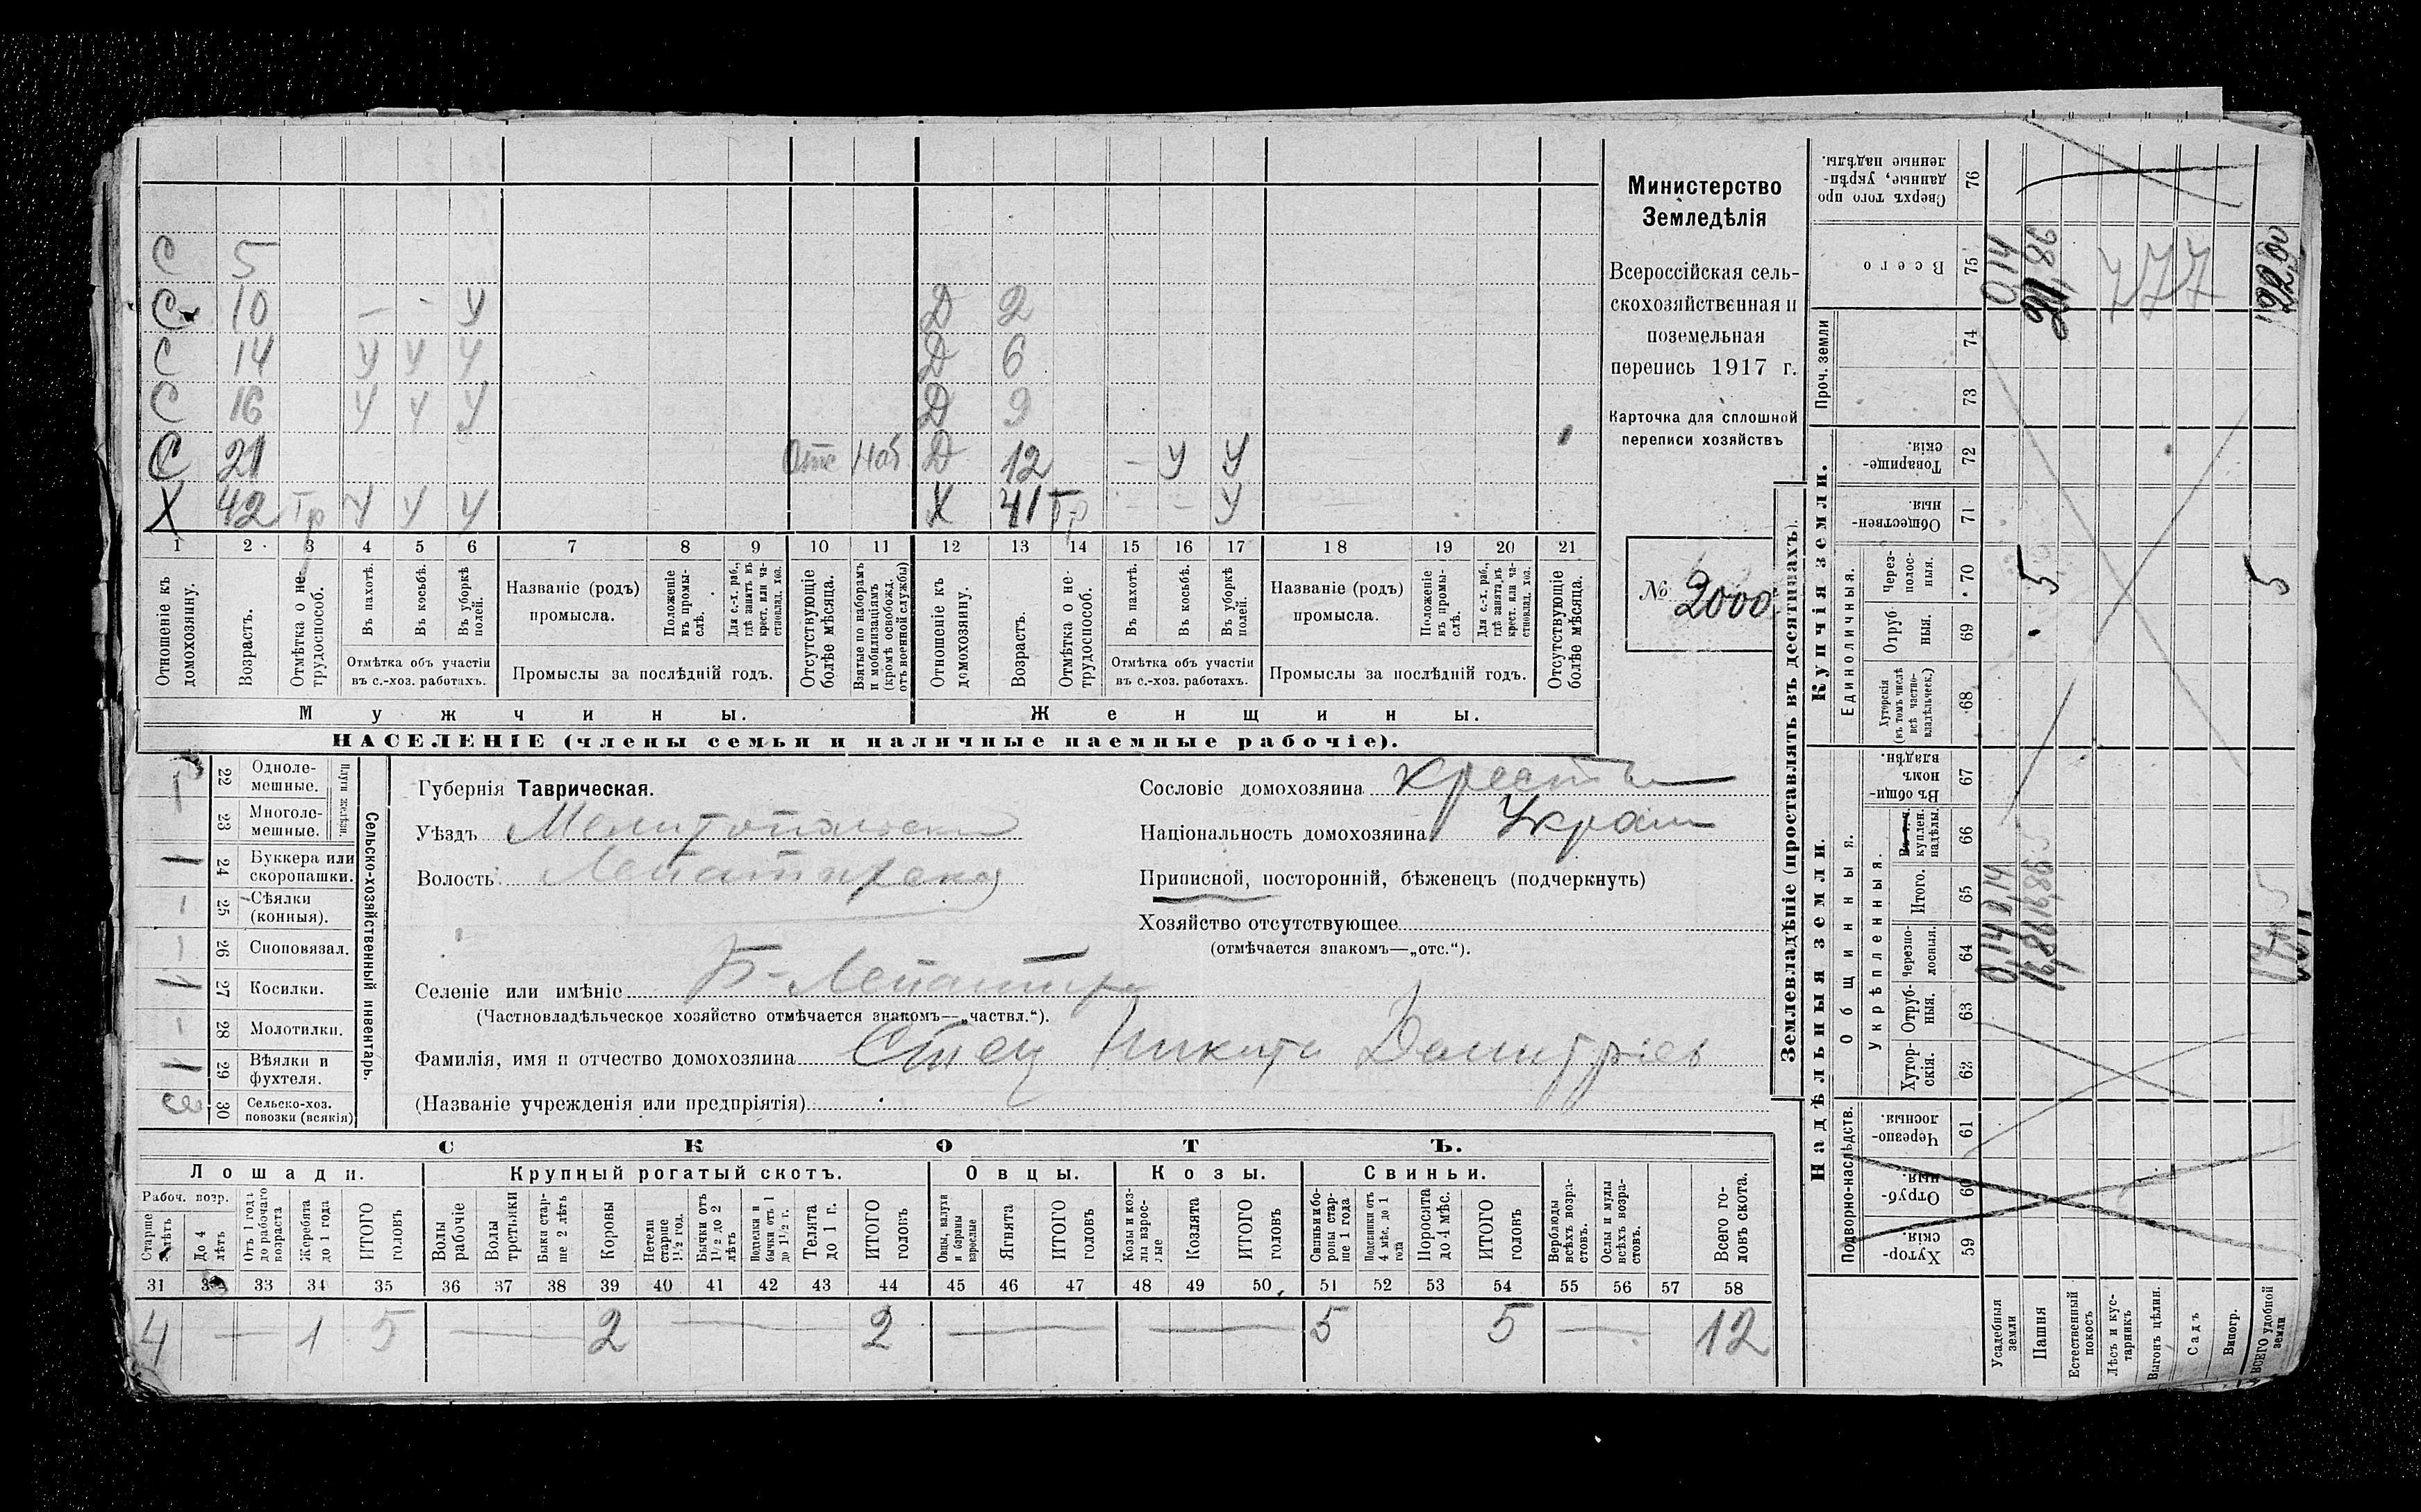 С 5
С 10 — - У Д 2
С 14 У У У Д 6
С 16 У У У Д 9
С 21 Отс Наб Д 12 — У У
Х 42 Тр У У У Х 41 Тр - - У
1 2 3 4 5 6 7 8 9 10 11 12 13 14 15 16 17 18 19 20 21
Отношеніе къ домохозяину.
Возрастъ.
Отмѣтка о нетрудоспособ.
Въ пахотѣ.
Въ косьбѣ.
Въ уборкѣ полей.
Отмѣтка объ участіи въ с.-хоз. работахъ.
Названіе (родъ) промысла.
Положеніе въ промыслѣ.
Для с.-х. раб., гдѣ занятъ въ крест. или частновлад. хоз.
Промыслы за послѣдній годъ.
Отсутствующіе болѣе мѣсяца.
Взятые по наборамъ и мобилизаціямъ (кромѣ освобожд. отъ военной службы)
Отношеніе къ домохозяину.
Возрастъ.
Отмѣтка о нетрудоспособ.
Въ пахотѣ.
Въ косьбѣ.
Въ уборкѣ полей.
Отмѣтка объ участіи въ с.-хоз. работахъ.
Названіе (родъ) промысла.
Положеніе въ промыслѣ.
Для с.-х. раб., гдѣ занята въ крест. или частновлад. хоз.
Промыслы за послѣдній годъ.
Отсутствующіе болѣе мѣсяца.
Мужчины. Женщины.
НАСЕЛЕНІЕ (члены семьи и наличные наемные рабочіе).
Министерство
Земледѣлія
Всероссійская сель-
скохозяйственная и
поземельная
перепись 1917 г.
Карточка для сплошной
переписи хозяйствъ
№ 2000
22 Одноле-
мешные.
23 Многоле-
мешные.
Плуги желѣзн.
1 24 Буккера или
скоропашки.
— 25 Сѣялки
(конныя).
— 26 Сноповязал.
1 27 Косилки.
— 28 Молотилки.
1 29 Вѣялки и
фухтеля.
3 30 Сельско-хоз.
повозки (всякія)
Сельско-хозяйственный инвентарь.
Губернія Таврическая.
Уѣздъ Мелитопольски
Волость Лепатихская
Селеніе или имѣніе Б-Лепатиха
(Частновладѣльческое хозяйство отмѣчается знакомъ—„частвл.“).
Фамилія, имя и отчество домохозяина Стец Никита Дмитріев
(Названіе учрежденія или предпріятія)
Сословіе домохозяина крестьян
Національность домохозяина Украин
Приписной, посторонній, бѣженецъ (подчеркнуть)
Хозяйство отсутствующее
(отмѣчается знакомъ—„отс.“).
СКОТЪ.
Лошади. Крупный рогатый скотъ. Овцы. Козы. Свиньи.
Рабоч. возр.
Старше 4 лѣтъ
До 4 лѣтъ
Отъ 1 года до рабочаго возраста
Жеребята до 1 года
ИТОГО головъ
Волы рабочіе
Волы третьяки
Быки старше 2 лѣтъ
Коровы
Нетели старше 1½ год.
Бычки отъ 1½ до 2 лѣтъ
Подтелки и бычки отъ 1 до 1½ г.
Телята до 1 г.
ИТОГО головъ
Овцы, валухи и бараны взрослые
Ягнята
ИТОГО головъ
Козы и козлы взрослые
Козлята
ИТОГО головъ
Свиньи и боровы старше 1 года
Подсвинки отъ 4 мѣс. до 1 года
Поросята до 4 мѣс.
ИТОГО головъ
Верблюды всѣхъ возрастовъ.
Ослы и мулы всѣхъ возрастовъ.
Всего головъ скота.
31 32 33 34 35 36 37 38 39 40 41 42 43 44 45 46 47 48 49 50 51 52 53 54 55 56 57 58
4 — 1 5 — 2 — 2 — — 5 5 — 12
Землевладѣніе (проставлять въ десятинахъ).
Надѣльныя земли. Купчія земли. Проч. земли
Подворно-наслѣдств. Общинныя. Единоличныя.
Укрѣпленныя.
Хуторскія. 59
Отрубныя. 60
Черезполосныя. 61
Хуторскія. 62
Отрубныя. 63
Черезполосныя. 64
Итого. 65
В т. ч. куплен. надѣлы. 66
Въ общинномъ владѣн. 67
Хуторскія (въ томъ числѣ всѣ частновладѣльческ.) 68
Отрубныя. 69
Черезполосныя. 70
Общественныя. 71
Товарищескія. 72
73
74
Всего 75
Сверхъ того проданные, укрѣпленные надѣлы. 76
Усадебныя земли 0,14 0,14 0,14
Пашня 16,86 16,86 5 21,86
Естественный покосъ
Лѣсъ и кустарникъ
Выгонъ цѣлин.
Садъ
Виногр.
ВСЕГО удобной земли 5 22,00